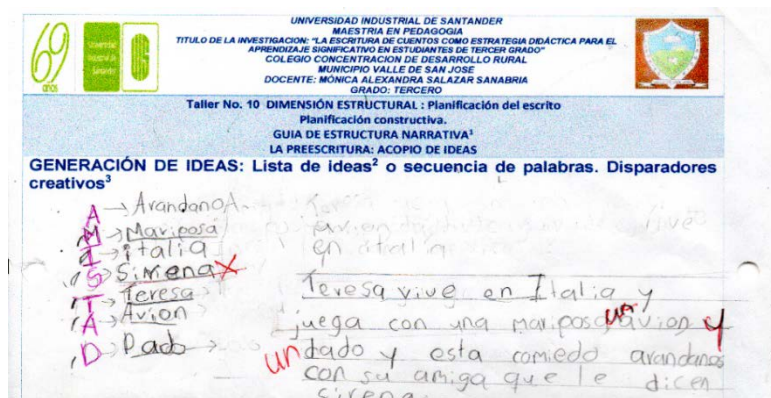 69
años
UNIVERSIDAD INDUSTRIAL DE SANTANDER
MAESTRIA EN PEDAGOGIA
TITULO DE LA INVESTIGACION: "LA ESCRITURA DE CUENTOS COMO ESTRATEGIA DIDÁCTICA PARA EL
APRENDIZAJE SIGNIFICATIVO EN ESTUDIANTES DE TERCER GRADO"
COLEGIO CONCENTRACION DE DESARROLLO RURAL
MUNICIPIO VALLE DE SAN JOSE
DOCENTE: MÓNICA ALEXANDRA SALAZAR SANABRIA
GRADO: TERCERO
Taller No. 10 DIMENSIÓN ESTRUCTURAL : Planificación del escrito
Planificación constructiva.
GUIA DE ESTRUCTURA NARRATIVA¹
LA PREESCRITURA: ACOPIO DE IDEAS
GENERACIÓN DE IDEAS: Lista de ideas² o secuencia de palabras. Disparadores
creativos³
A → Arandano
M → Mariposa
I → italia
S → Sirena X
T → Teresa
A → Avion
D → Dado
en italia
Teresa vive en Italia y
juega con una mariposa un avion y
un dado y esta comiedo arandanos
con su amiga que le dicen
sirena